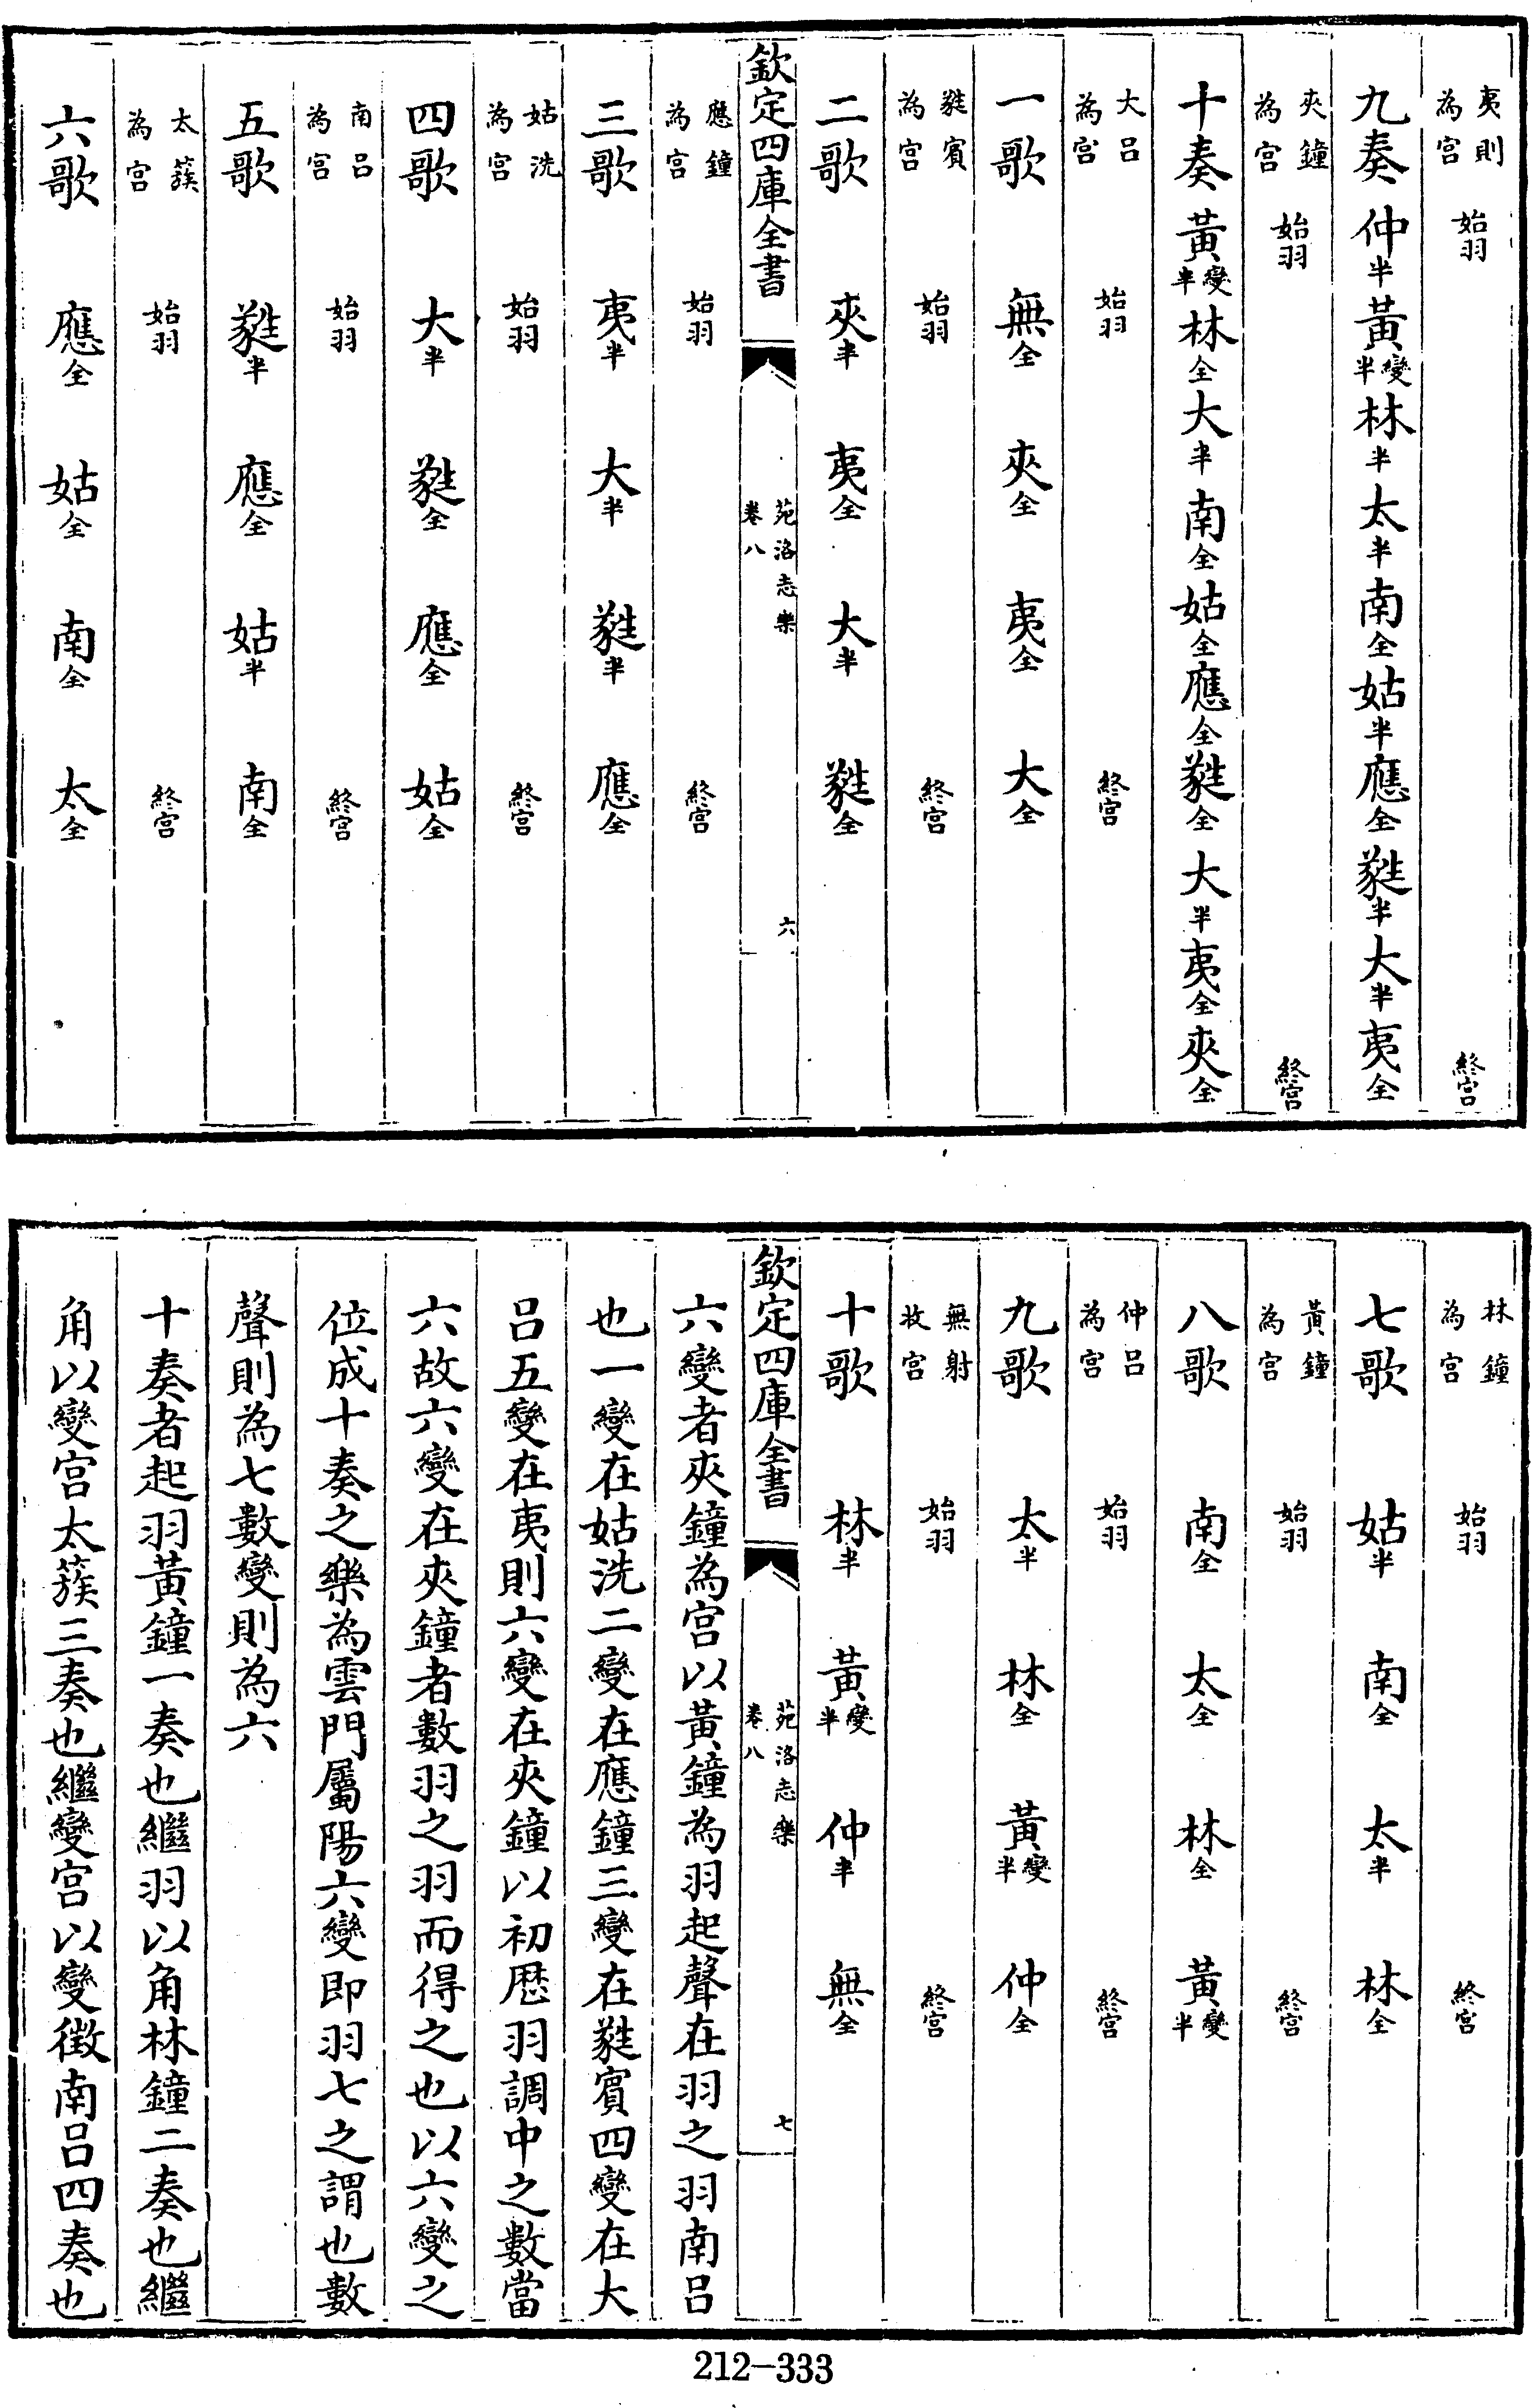 夷則為宮 始羽 終宮
九奏 仲半 黃變半 林半 太半 南全 姑半 應全 蕤半 大半 夷全
夾鐘為宮 始羽 終宮
十奏 黃變半 林全 大半 南全 姑全 應全 蕤全 大半 夷全 夾全
大呂為宮 始羽 終宮
一歌 無全 夾全 夷全 大全
蕤賓為宮 始羽 終宮
二歌 夾半 夷全 大半 蕤全
欽定四庫全書 苑洛志樂卷八 六
應鐘為宮 始羽 終宮
三歌 夷半 大半 蕤半 應全
姑洗為宮 始羽 終宮
四歌 大半 蕤全 應全 姑全
南呂為宮 始羽 終宮
五歌 蕤半 應全 姑半 南全
太簇為宮 始羽 終宮
六歌 應全 姑全 南全 太全
林鐘為宮 始羽 終宮
七歌 姑半 南全 太半 林全
黃鐘為宮 始羽 終宮
八歌 南全 太全 林全 黃變半
仲呂為宮 始羽 終宮
九歌 太半 林全 黃變半 仲全
無射攷宮 始羽 終宮
十歌 林半 黃變半 仲半 無全
欽定四庫全書 苑洛志樂卷八 七
六變者夾鐘為宮以黃鐘為羽起聲在羽之羽南呂
也一變在姑洗二變在應鐘三變在蕤賓四變在大
呂五變在夷則六變在夾鐘以初歷羽調中之數當
六故六變在夾鐘者數羽之羽而得之也以六變之
位成十奏之樂為雲門屬陽六變即羽七之謂也數
聲則為七數變則為六
十奏者起羽黃鐘一奏也繼羽以角林鐘二奏也繼
角以變宮太簇三奏也繼變宮以變徵南呂四奏也
212-333